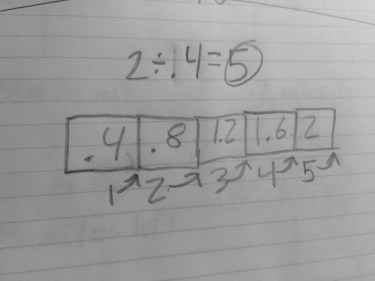 2÷.4=5
.4 .8 1.2 1.6 2
1 2 3 4 5